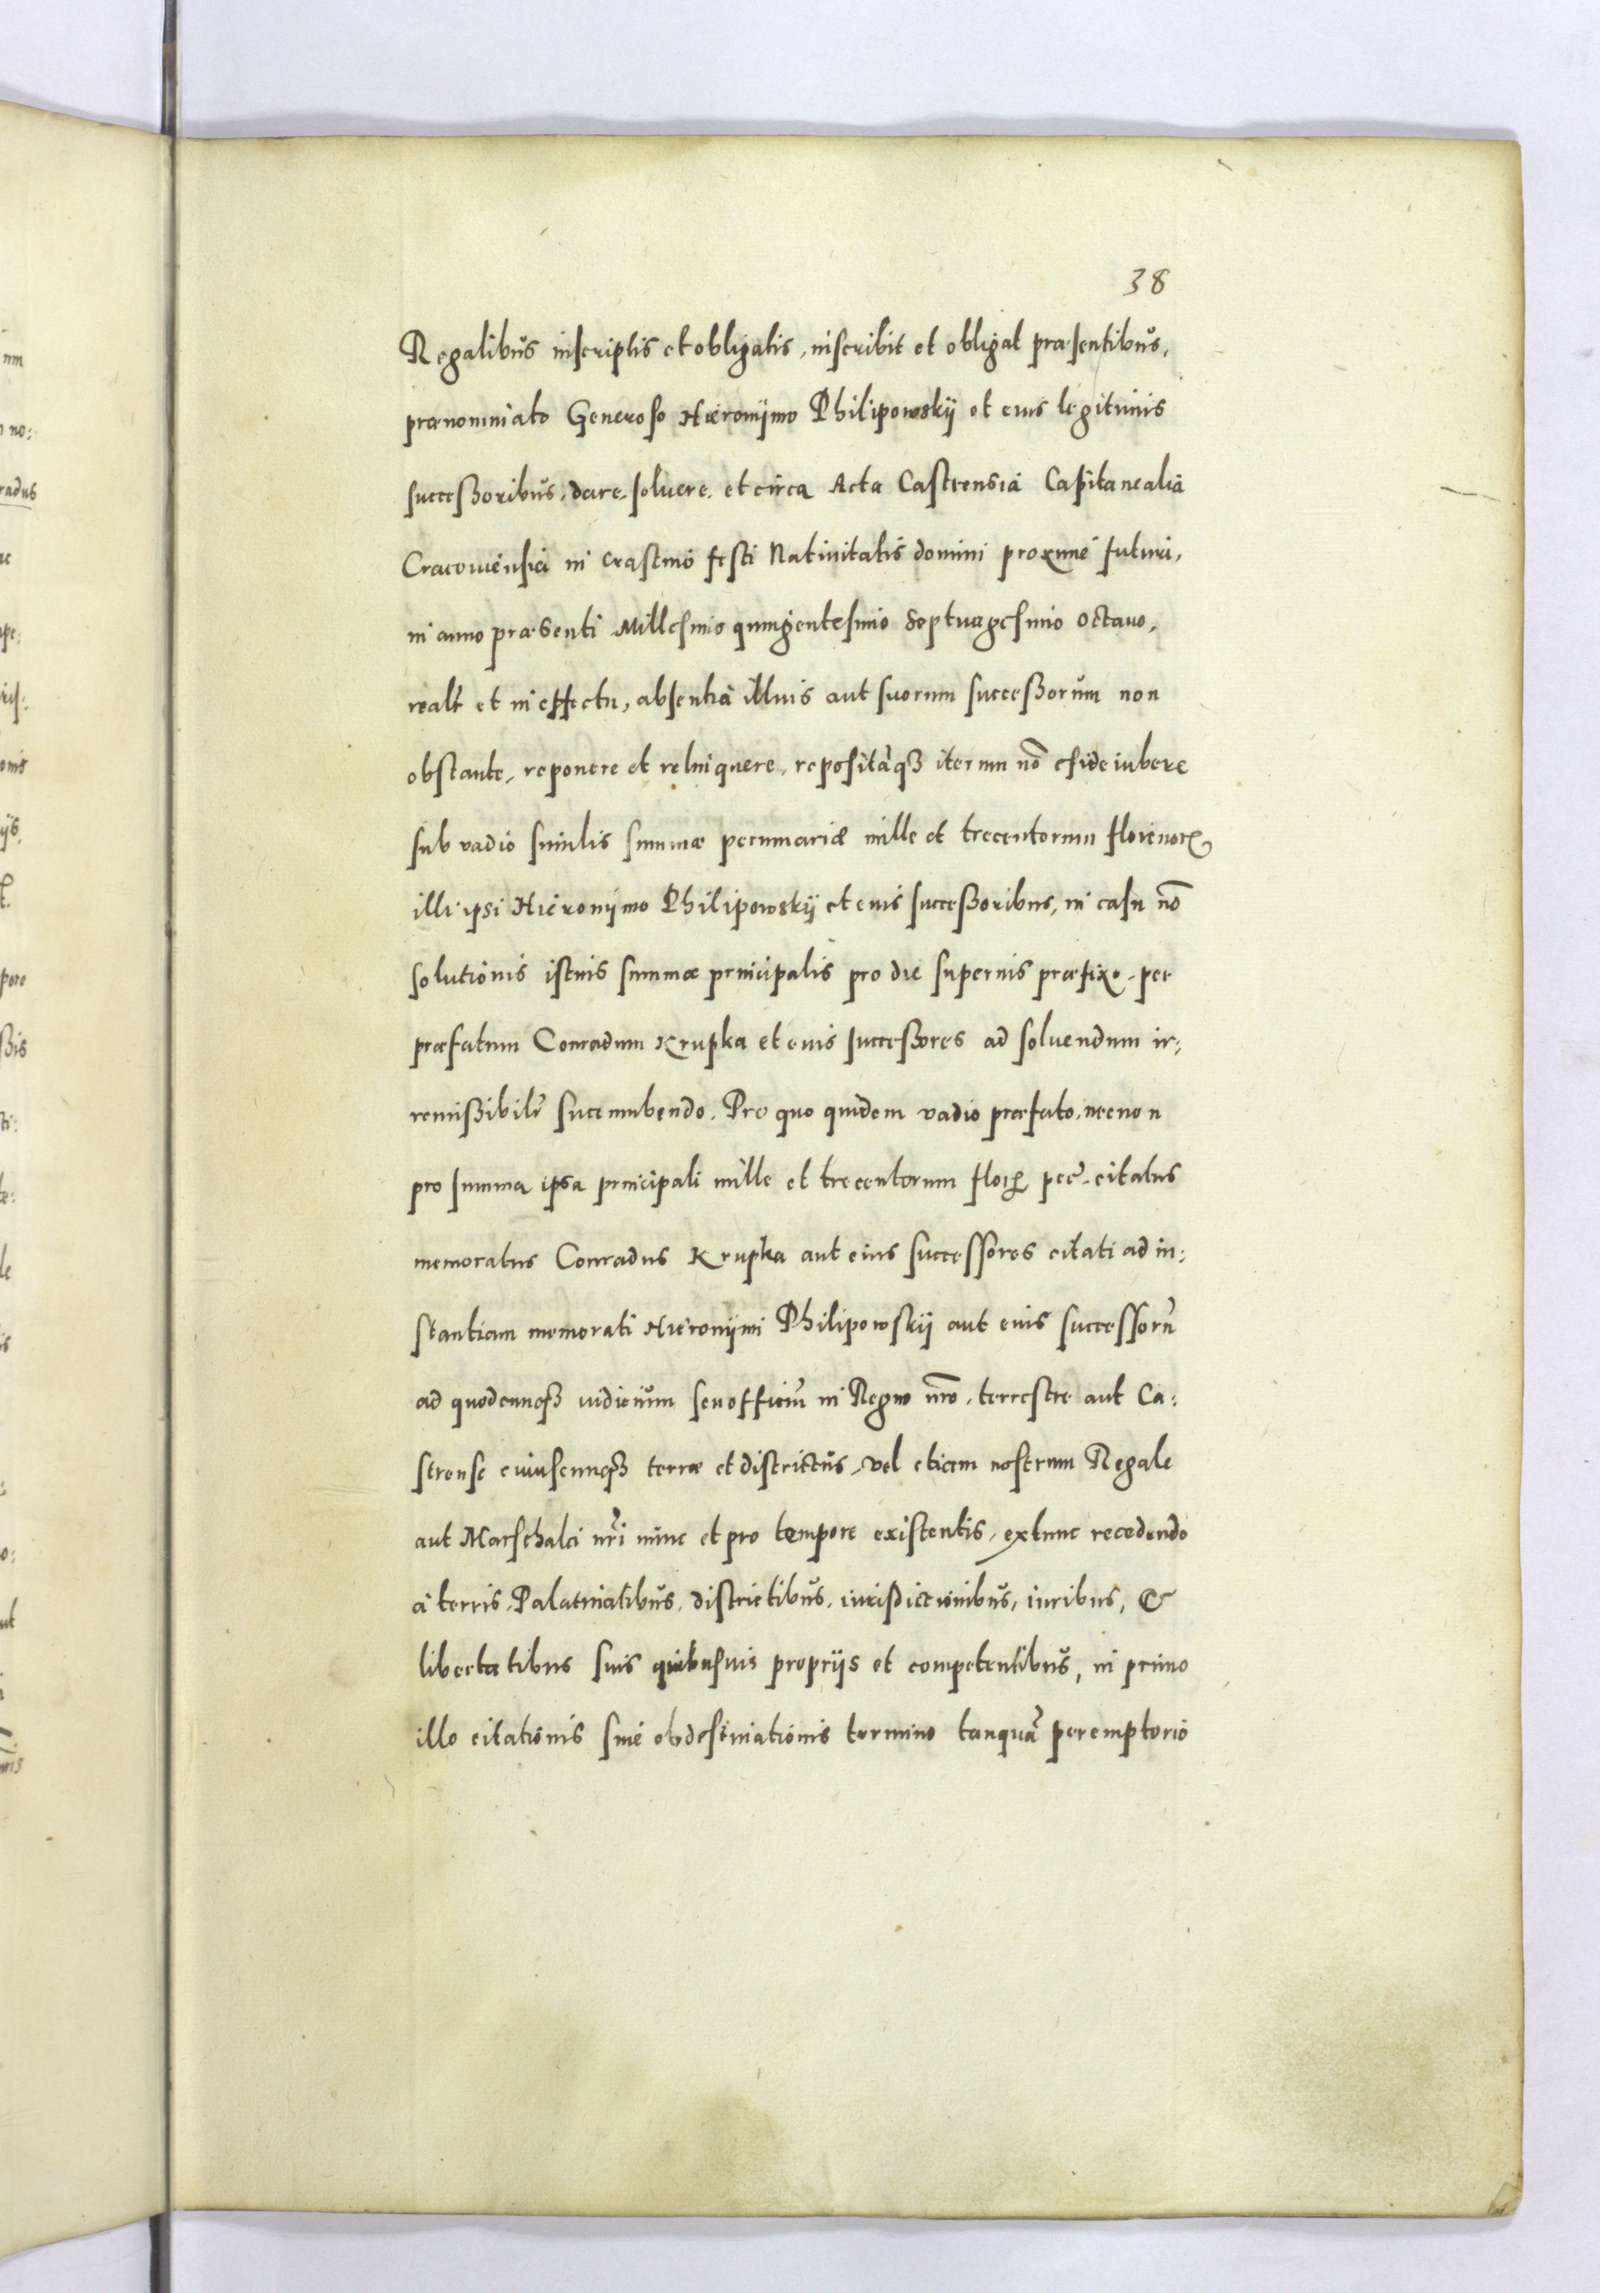 38
Regalibus inscriptis et obligatis, inscribit et obligat præsentibus,
prænominato Generoso Hieronijmo Philipowskij et eius legitimis
successoribus, dare, soluere, et circa Acta Castrensia Capitanealia
Cracouiensia in crastino festi Natiuitatis domini proxime futuri,
in anno præsenti Millesimo quingentesimo Septuagesimo octauo,
realr̄ et in effectu, absentia illius aut suorum successorum non
obstante, reponere et relinquere, repositaq3 iterum nō efideiubere
sub vadio similis summæ pecuniariæ mille et trecentorum florenor.
illi ipsi Hieronijmo Philipowskij et eius successoribus, in casu nō
solutionis istius summæ principalis pro die superius præfixo, per
præfatum Conradum Krupka et eius successores ad soluendum ir:
remissibilr̄ succumbendo. Pro quo quidem vadio præfato, necnon
pro summa ipsa principali mille et trecentorum flor. pec̄. citatus
memoratus Conradus Krupka aut eius successores citati ad in:
stantiam memorati Hieronijmi Philipowskij aut eius successorū
ad quodcunq3 iudicium seu officiū in Regno nr̄o, terrestre aut Ca:
strense cuiuscunq3 terræ et districtus, vel etiam nostrum Regale
aut Marschalci nr̄i nunc et pro tempore existentis, extunc recedendo
à terris, Palatinatibus, districtibus, iurisdictionibus, iuribus, &
libertatibus suis quibusuis proprijs et competentibus, in primo
illo citationis siue obdestinationis termino tanquā peremptorio
nim
no:
radus